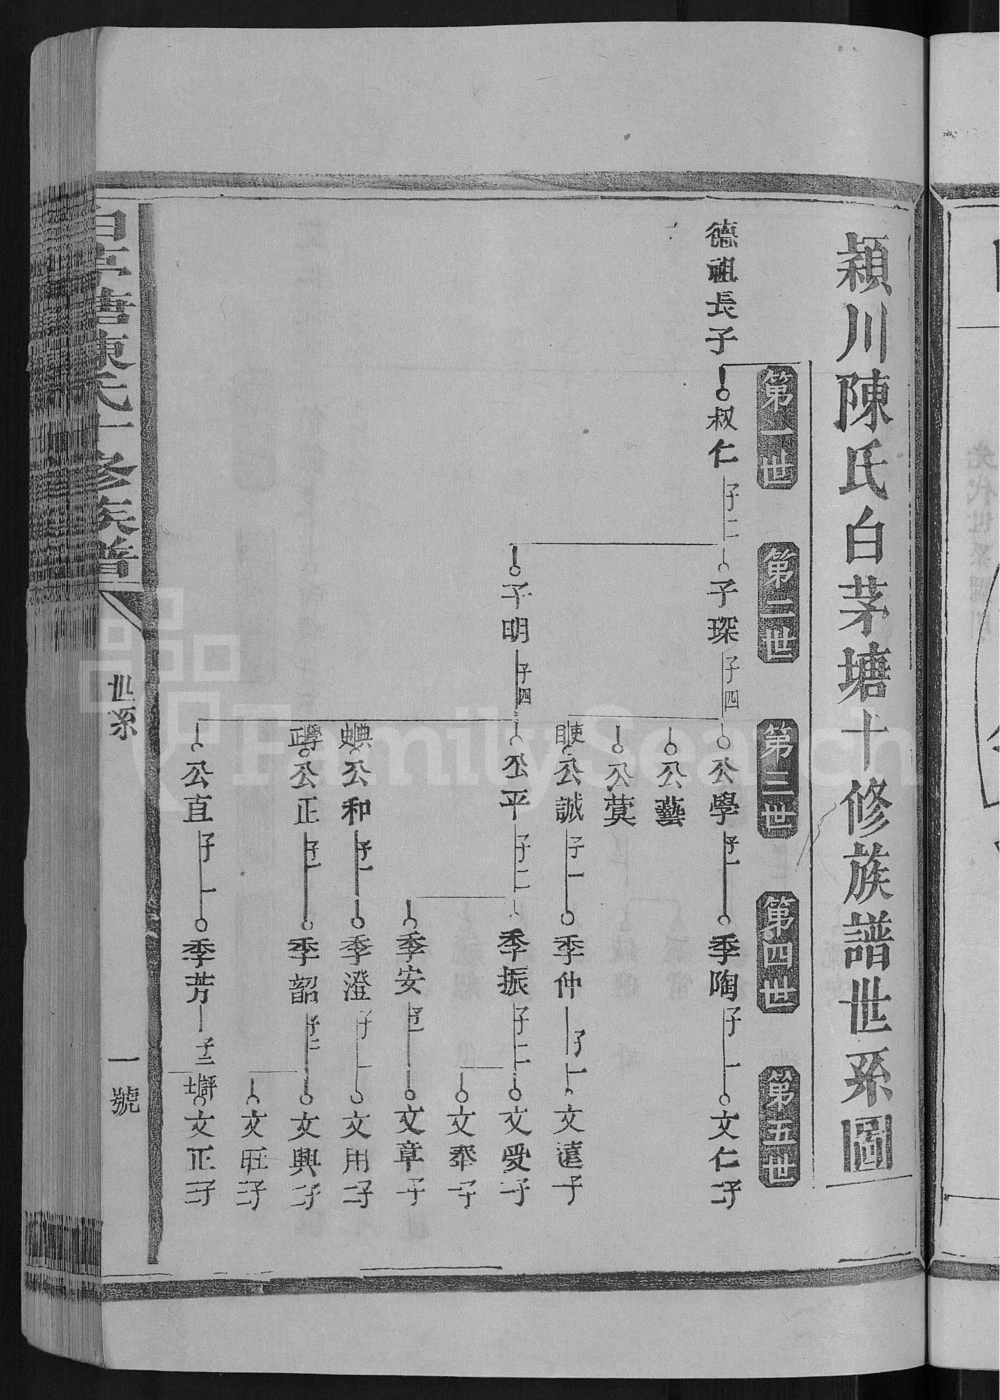 潁川陳氏白茅塘十修族譜世系圖
第一世
第二世
第三世
第四世
第五世
德祖長子
叔仁 子二
子琛 子四
公學 子一
季陶 子一
文仁 二子
公藝
公蓂
公誠 子一
季仲 子一
文遠 子
子明 子四
公平 子二
季振 子二
文受 二子
文奉 二子
季安 子一
文章 子
公和 子一
季澄 子一
文用 二子
公正 子一
季韶 子二
文興 二子
文旺 二子
公直 子一
季芳 子二
文正 二子
白茅塘陳氏十修族譜
世系
一號
FamilySearch